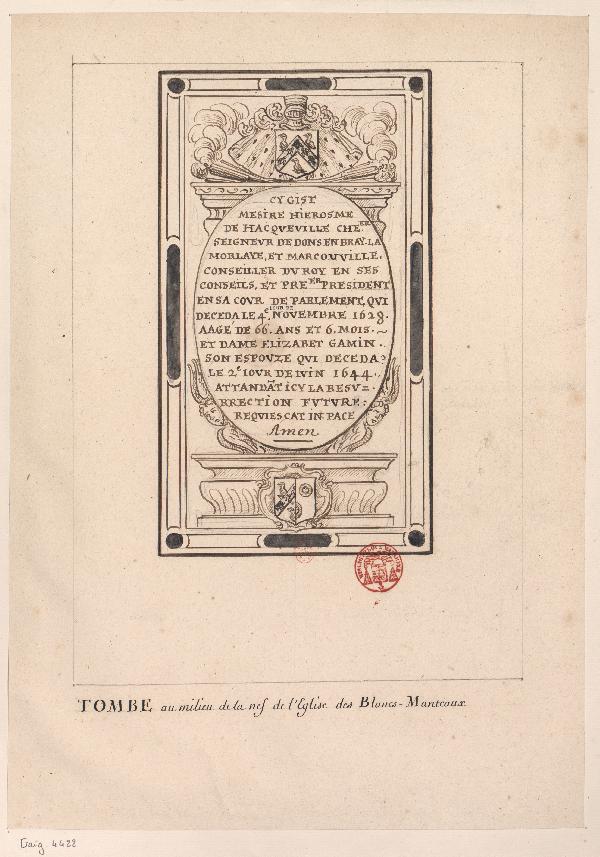 CY GIST
MESIRE HIEROSME
DE HACQVEVILLE CHE.ER
SEIGNEVR DE DONS EN BRAY. LA
MORLAYE, ET MARCOUVILLE.
CONSEILLER DV ROY EN SES
CONSEILS, ET PRE.ER PRESIDENT
EN SA COVR DE PARLEMENT, QVI
DECEDA LE 4.e IOUR DE NOVEMBRE 1628.
AAGE DE 66. ANS ET 6. MOIS. ~
ET DAME ELIZABET GAMIN.
SON ESPOVZE QVI DECEDA
LE 2.e IOVR DE IVIN 1644.
ATTANDĀT ICY LA RESV=
RRECTION FVTVRE:
REQVIESCAT IN PACE
Amen
TOMBE au milieu de la nef de l'Eglise des Blancs-Manteaux
Gaig. 4428